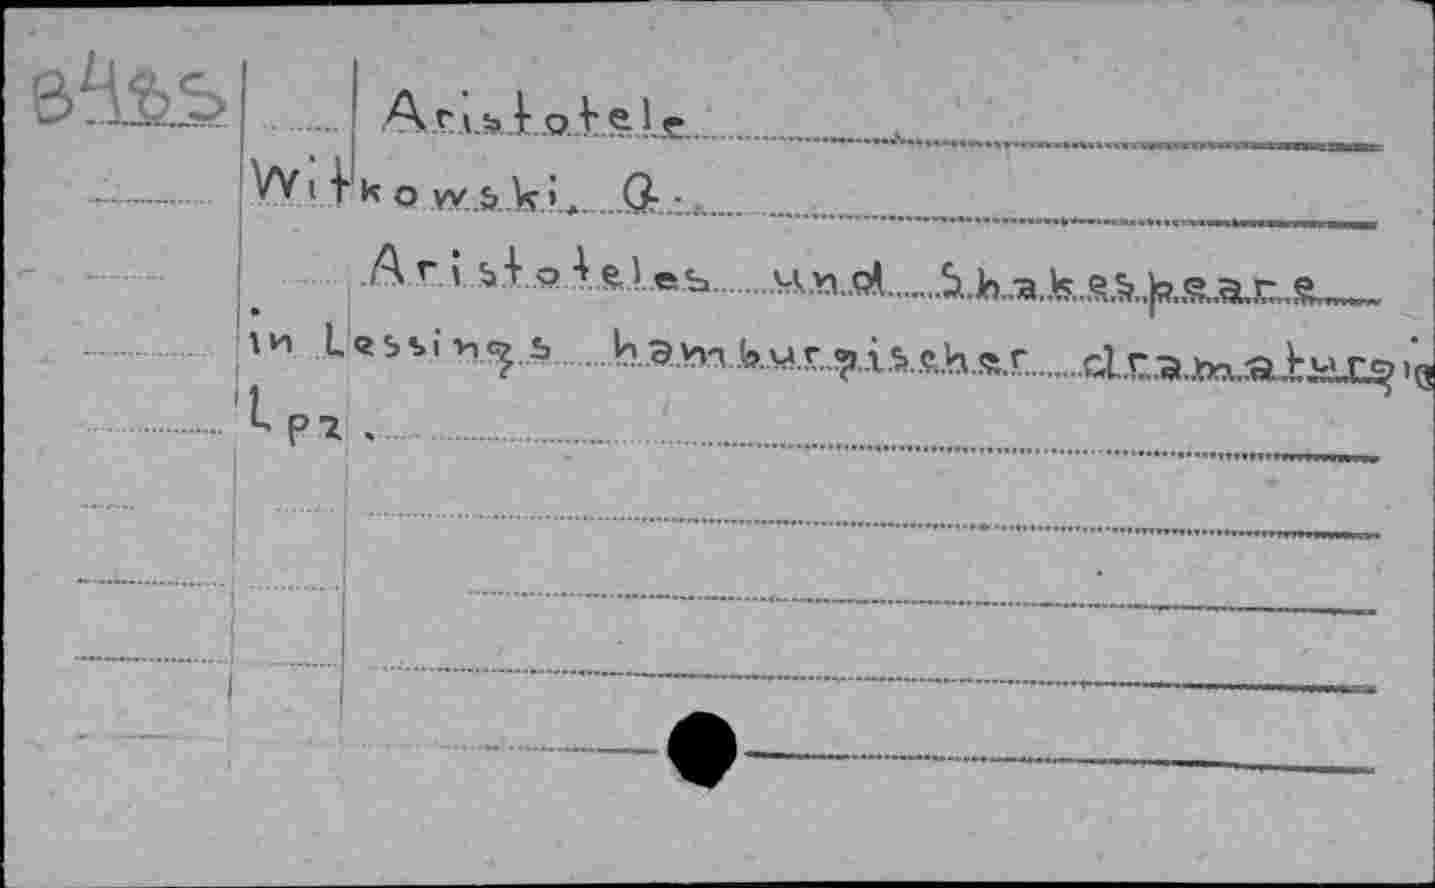 B485
Aristotele
Witkowski, G.
Aristoteles und Shakespeare
in Lessings hamburgischer dramaturgie
Lpz.